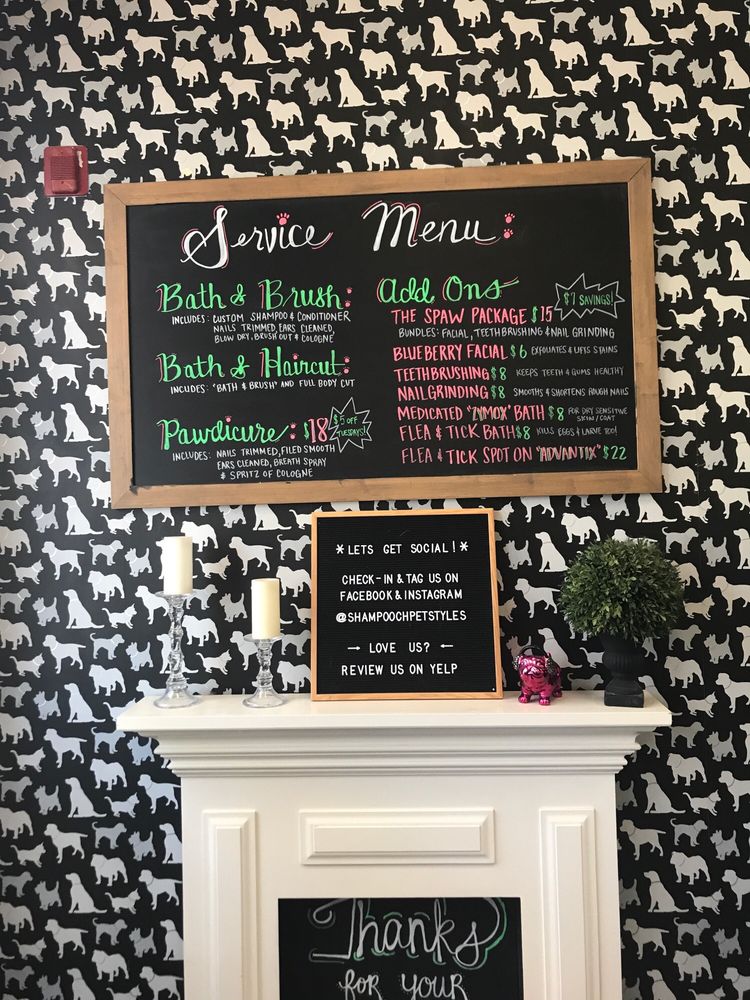 Service Menu:
Bath & Brush:
INCLUDES: CUSTOM SHAMPOO & CONDITIONER
NAILS TRIMMED, EARS CLEANED,
BLOW DRY, BRUSH OUT & COLOGNE
Bath & Haircut:
INCLUDES: "BATH & BRUSH" AND FULL BODY CUT
Pawdicure: $18
$5 OFF
TUESDAYS!
INCLUDES: NAILS TRIMMED, FILED SMOOTH
EARS CLEANED, BREATH SPRAY
& SPRITZ OF COLOGNE
Add Ons
$7 SAVINGS!
THE SPAW PACKAGE $15
BUNDLES: FACIAL, TEETHBRUSHING & NAIL GRINDING
BLUEBERRY FACIAL $6 EXFOLIATES & LIFTS STAINS
TEETHBRUSHING $8 KEEPS TEETH & GUMS HEALTHY
NAILGRINDING $8 SMOOTHS & SHORTENS ROUGH NAILS
MEDICATED "ZYMOX" BATH $8 FOR DRY SENSITIVE
SKIN/COAT
FLEA & TICK BATH $8 KILLS EGGS & LARVE TOO!
FLEA & TICK SPOT ON "ADVANTIX" $22
*LETS GET SOCIAL!*
CHECK-IN & TAG US ON
FACEBOOK & INSTAGRAM
@SHAMPOOCHPETSTYLES
→ LOVE US? ←
REVIEW US ON YELP
Thanks
for your